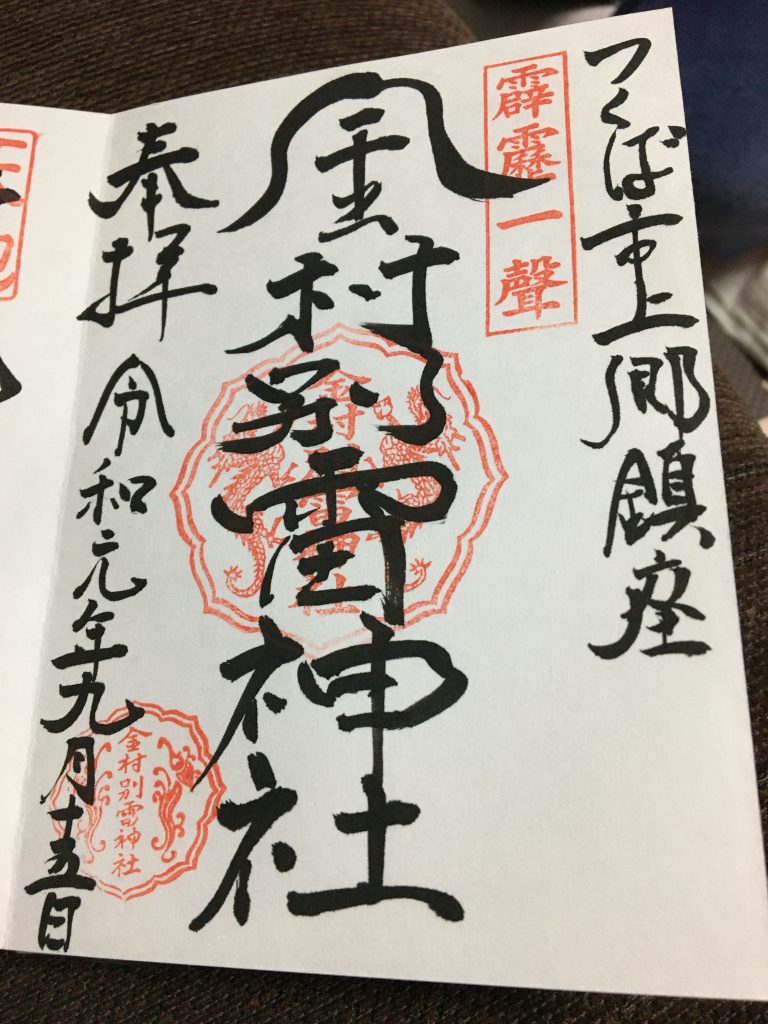 つくば市上郷鎮座
霹靂一聲
金村別雷神社
金村別雷神社
奉拝
令和元年九月十五日
金村別雷神社